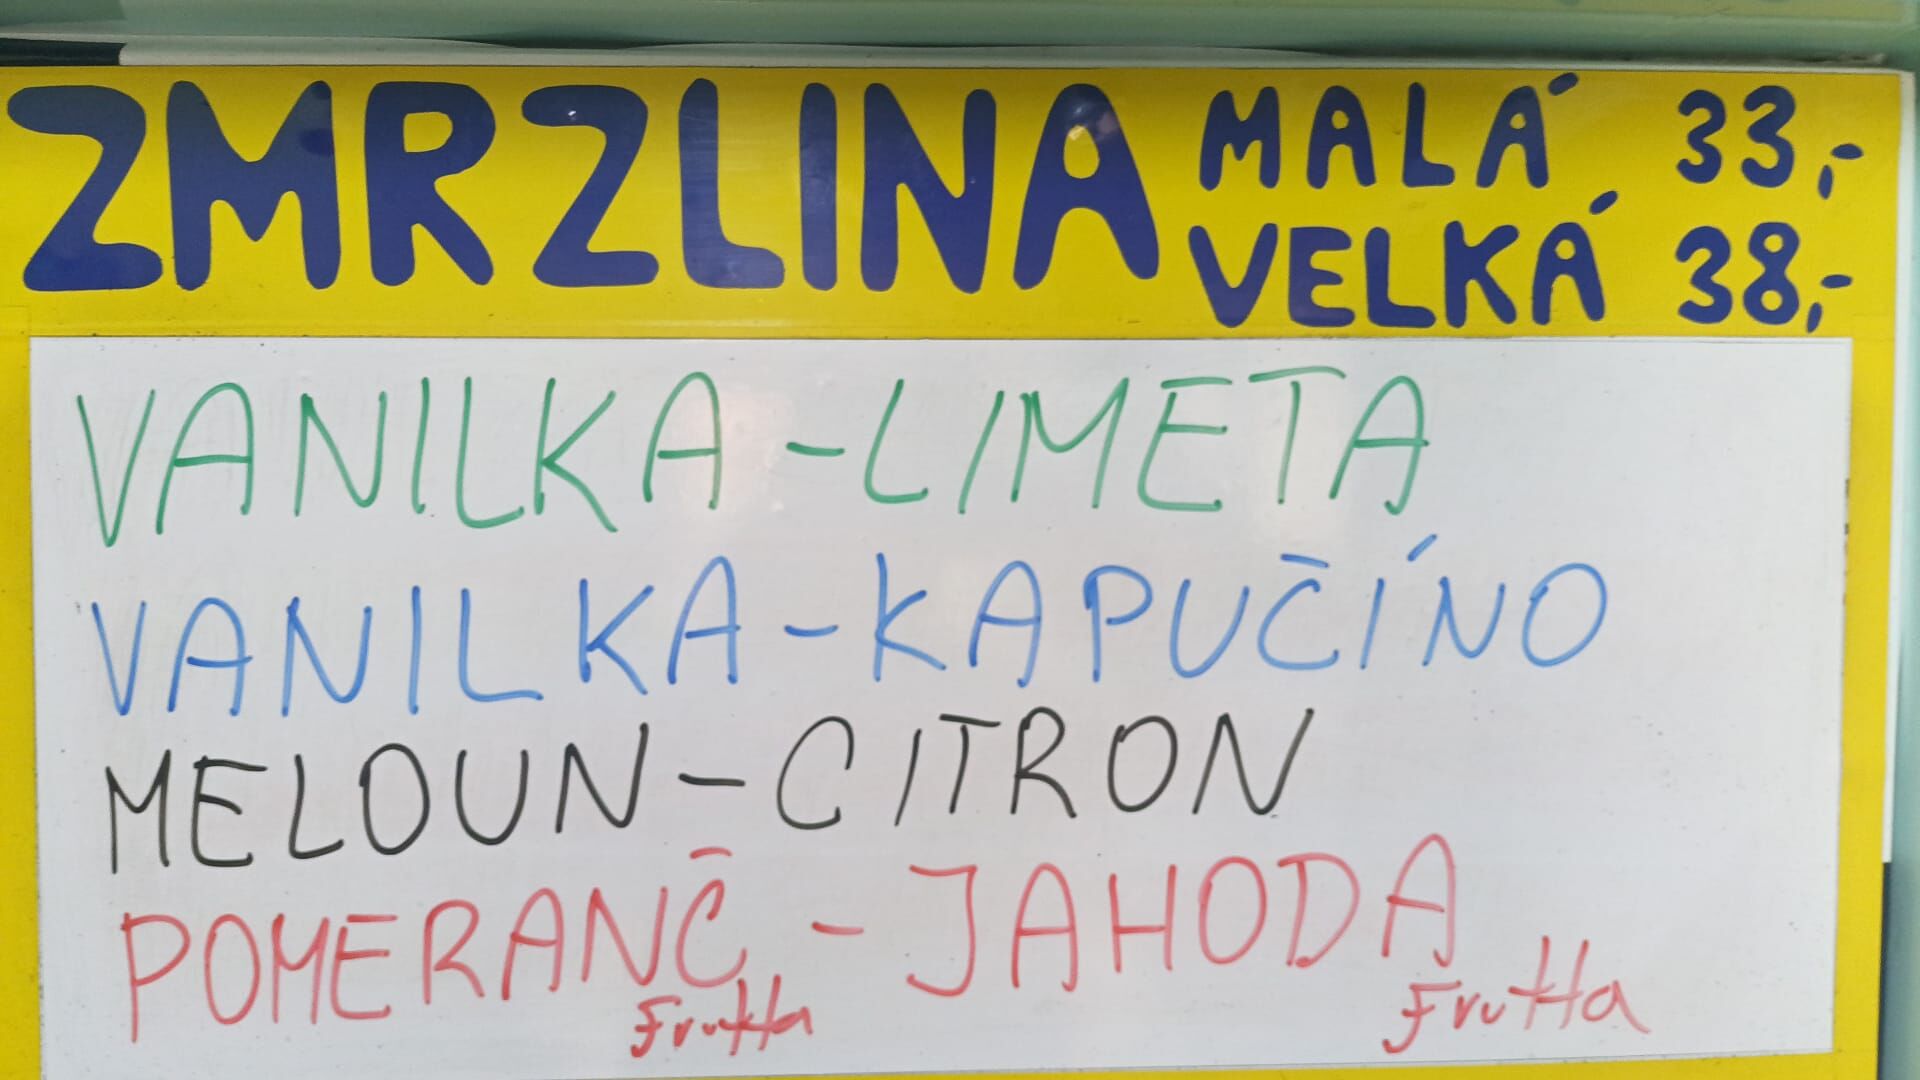 ZMRZLINA MALÁ 33,-
VELKÁ 38,-
VANILKA-LIMETA
VANILKA-KAPUČÍNO
MELOUN-CITRON
POMERANČ - JAHODA
Frutta Frutta